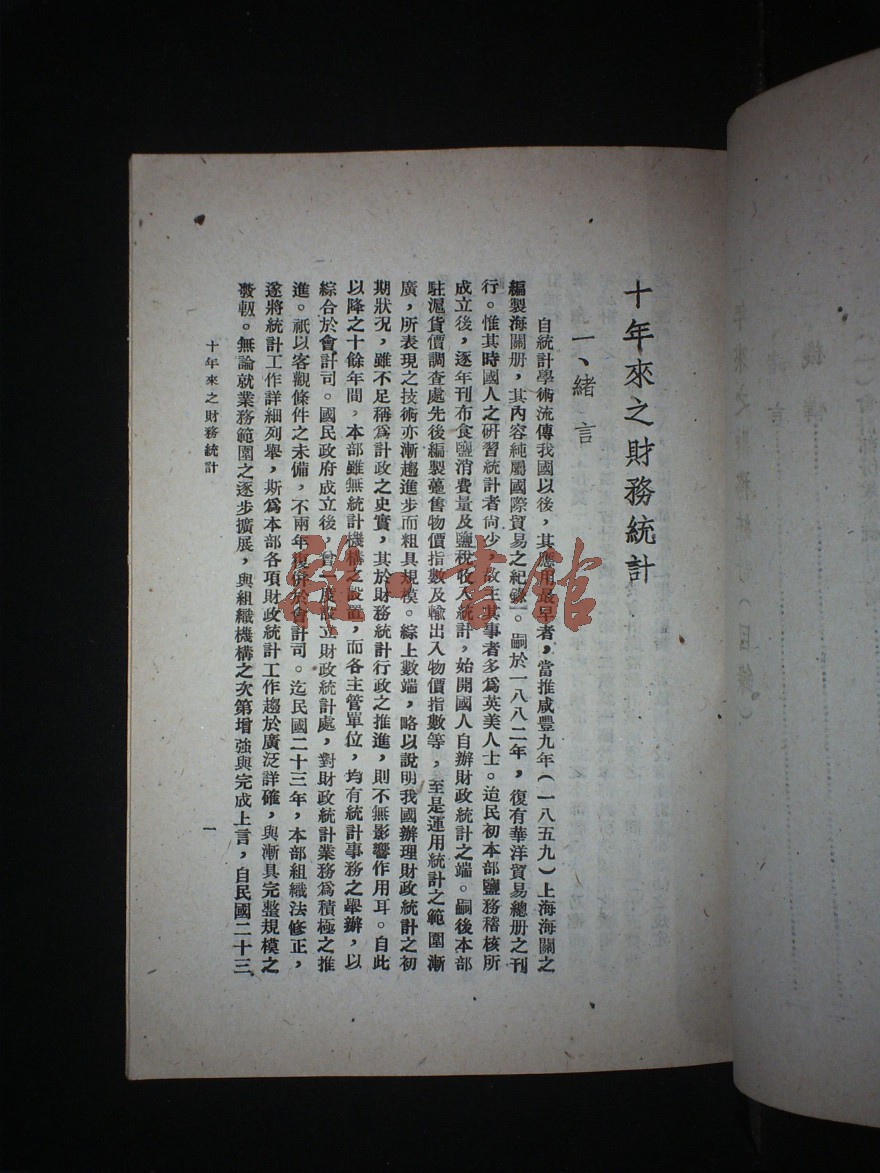 十年來之財務統計
一、緒言
自統計學術流傳我國以後，其應用最早者，當推咸豐九年（一八五九）上海海關之
編製海關册，其內容純屬國際貿易之紀錄。嗣於一八八二年，復有華洋貿易總册之刊
行。惟其時國人之研習統計者尙少，故主其事者多爲英美人士。迨民初本部鹽務稽核所
成立後，逐年刊布食鹽消費量及鹽稅收入統計，始開國人自辦財政統計之端。嗣後本部
駐滬貨價調查處先後編製躉售物價指數及輸出入物價指數等，至是運用統計之範圍漸
廣，所表現之技術亦漸趨進步而粗具規模。綜上數端，略以說明我國辦理財政統計之初
期狀況，雖不足稱爲計政之史實，其於財務統計行政之推進，則不無影響作用耳。自此
以降之十餘年間，本部雖無統計機構之設置，而各主管單位，均有統計事務之舉辦，以
綜合於會計司。國民政府成立後，曾一度設立財政統計處，對財政統計業務爲積極之推
進。祇以客觀條件之未備，不兩年復併於會計司。迄民國二十三年，本部組織法修正，
遂將統計工作詳細列舉，斯爲本部各項財政統計工作趨於廣泛詳確，與漸具完整規模之
發軔。無論就業務範圍之逐步擴展，與組織機構之次第增強與完成上言，自民國二十三
十年來之財務統計
一